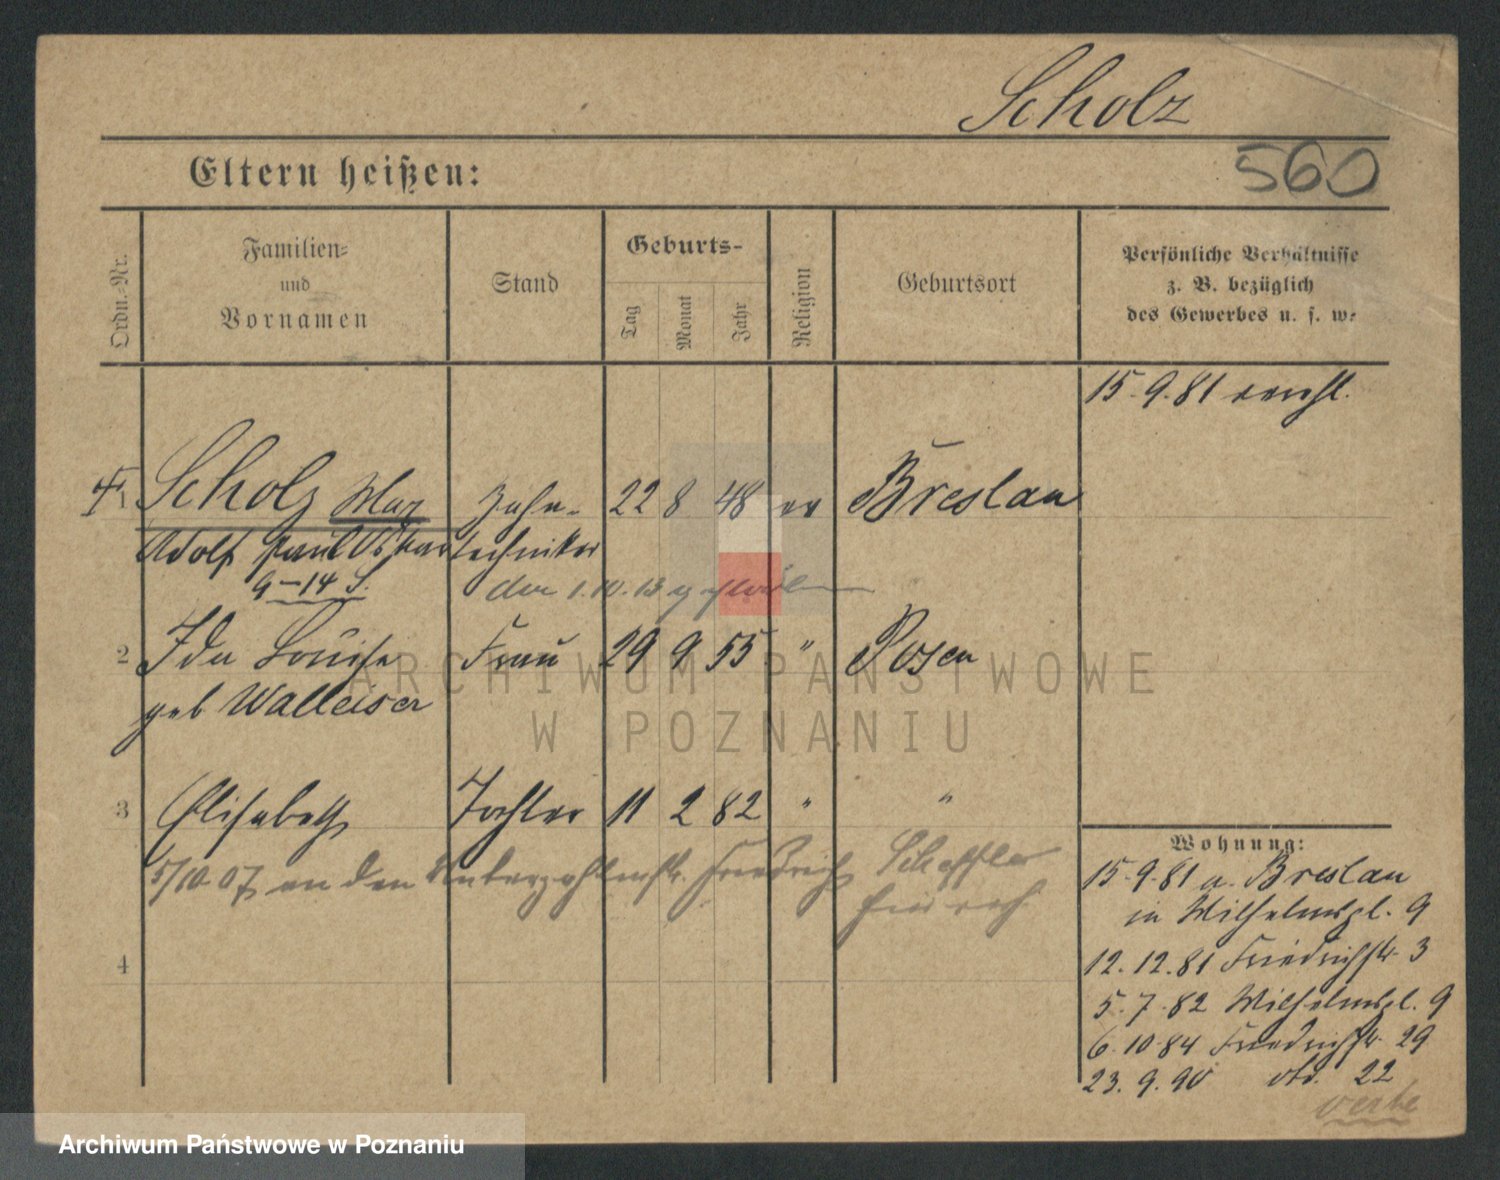 Scholz
Eltern heißen:
560
Ordn.-Nr.
Familien-
und
Vornamen
Stand
Geburts-
Tag
Monat
Jahr
Religion
Geburtsort
Persönliche Verhältnisse
z. B. bezüglich
des Gewerbes u. s. w.
15.9.81
1 Scholz Max Zahn- 22 8 48 ev Breslau
Adolf Paul Oskar techniker
9–14 S.
den 1.10.13
2 Ida Louise Frau 29 9 55 " Posen
geb Walleiser
3 Elisabeth Tochter 11 2 82 " "
5/10 07 an den Friedrich
4
Wohnung:
15.9.81 a. Breslau
in Wilhelmspl. 9
12.12.81 Friedrichstr. 3
5.7.82 Wilhelmspl. 9
6.10.84 Friedrichstr. 29
23.9.90 22
ARCHIWUM PAŃSTWOWE
W POZNANIU
Archiwum Państwowe w Poznaniu